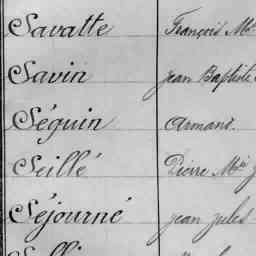 Savatte François Mie
Savin Jean Baptiste
Séguin Armand.
Seillé Pierre Mie J
Séjourné Jean Jules